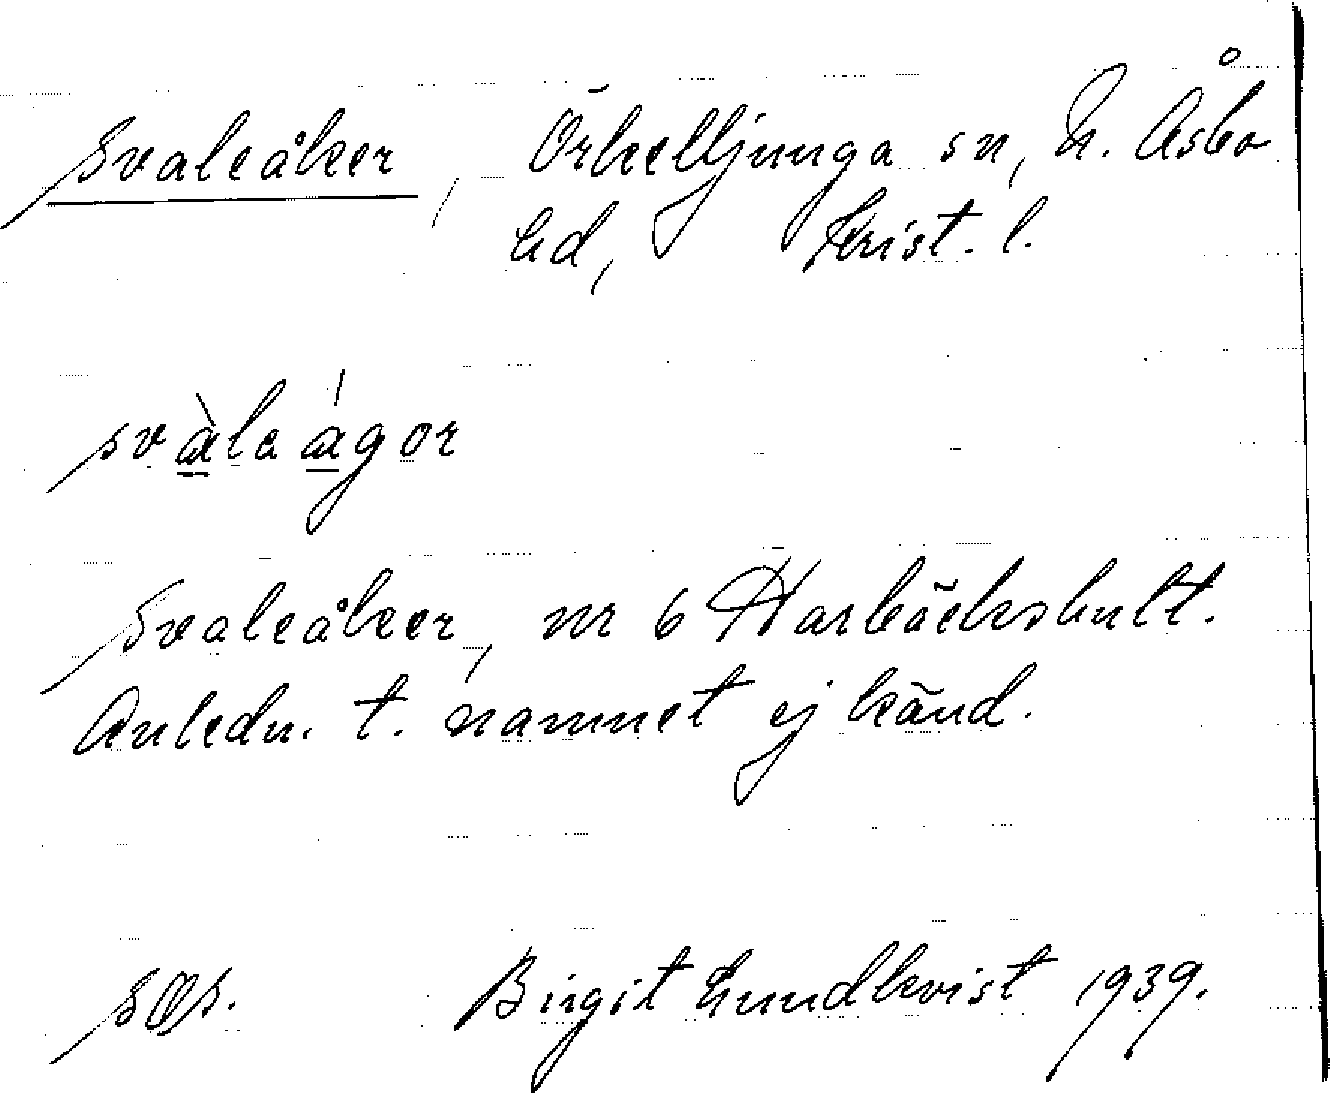 Svaleåker, Örkelljunga sn, N. Åsbo
hd, Krist. l.
svàla ágor
Svaleåker, nr 6 Harbäckshult.
Anledn. t. namnet ej känd.
Birgit Lundkvist 1939.